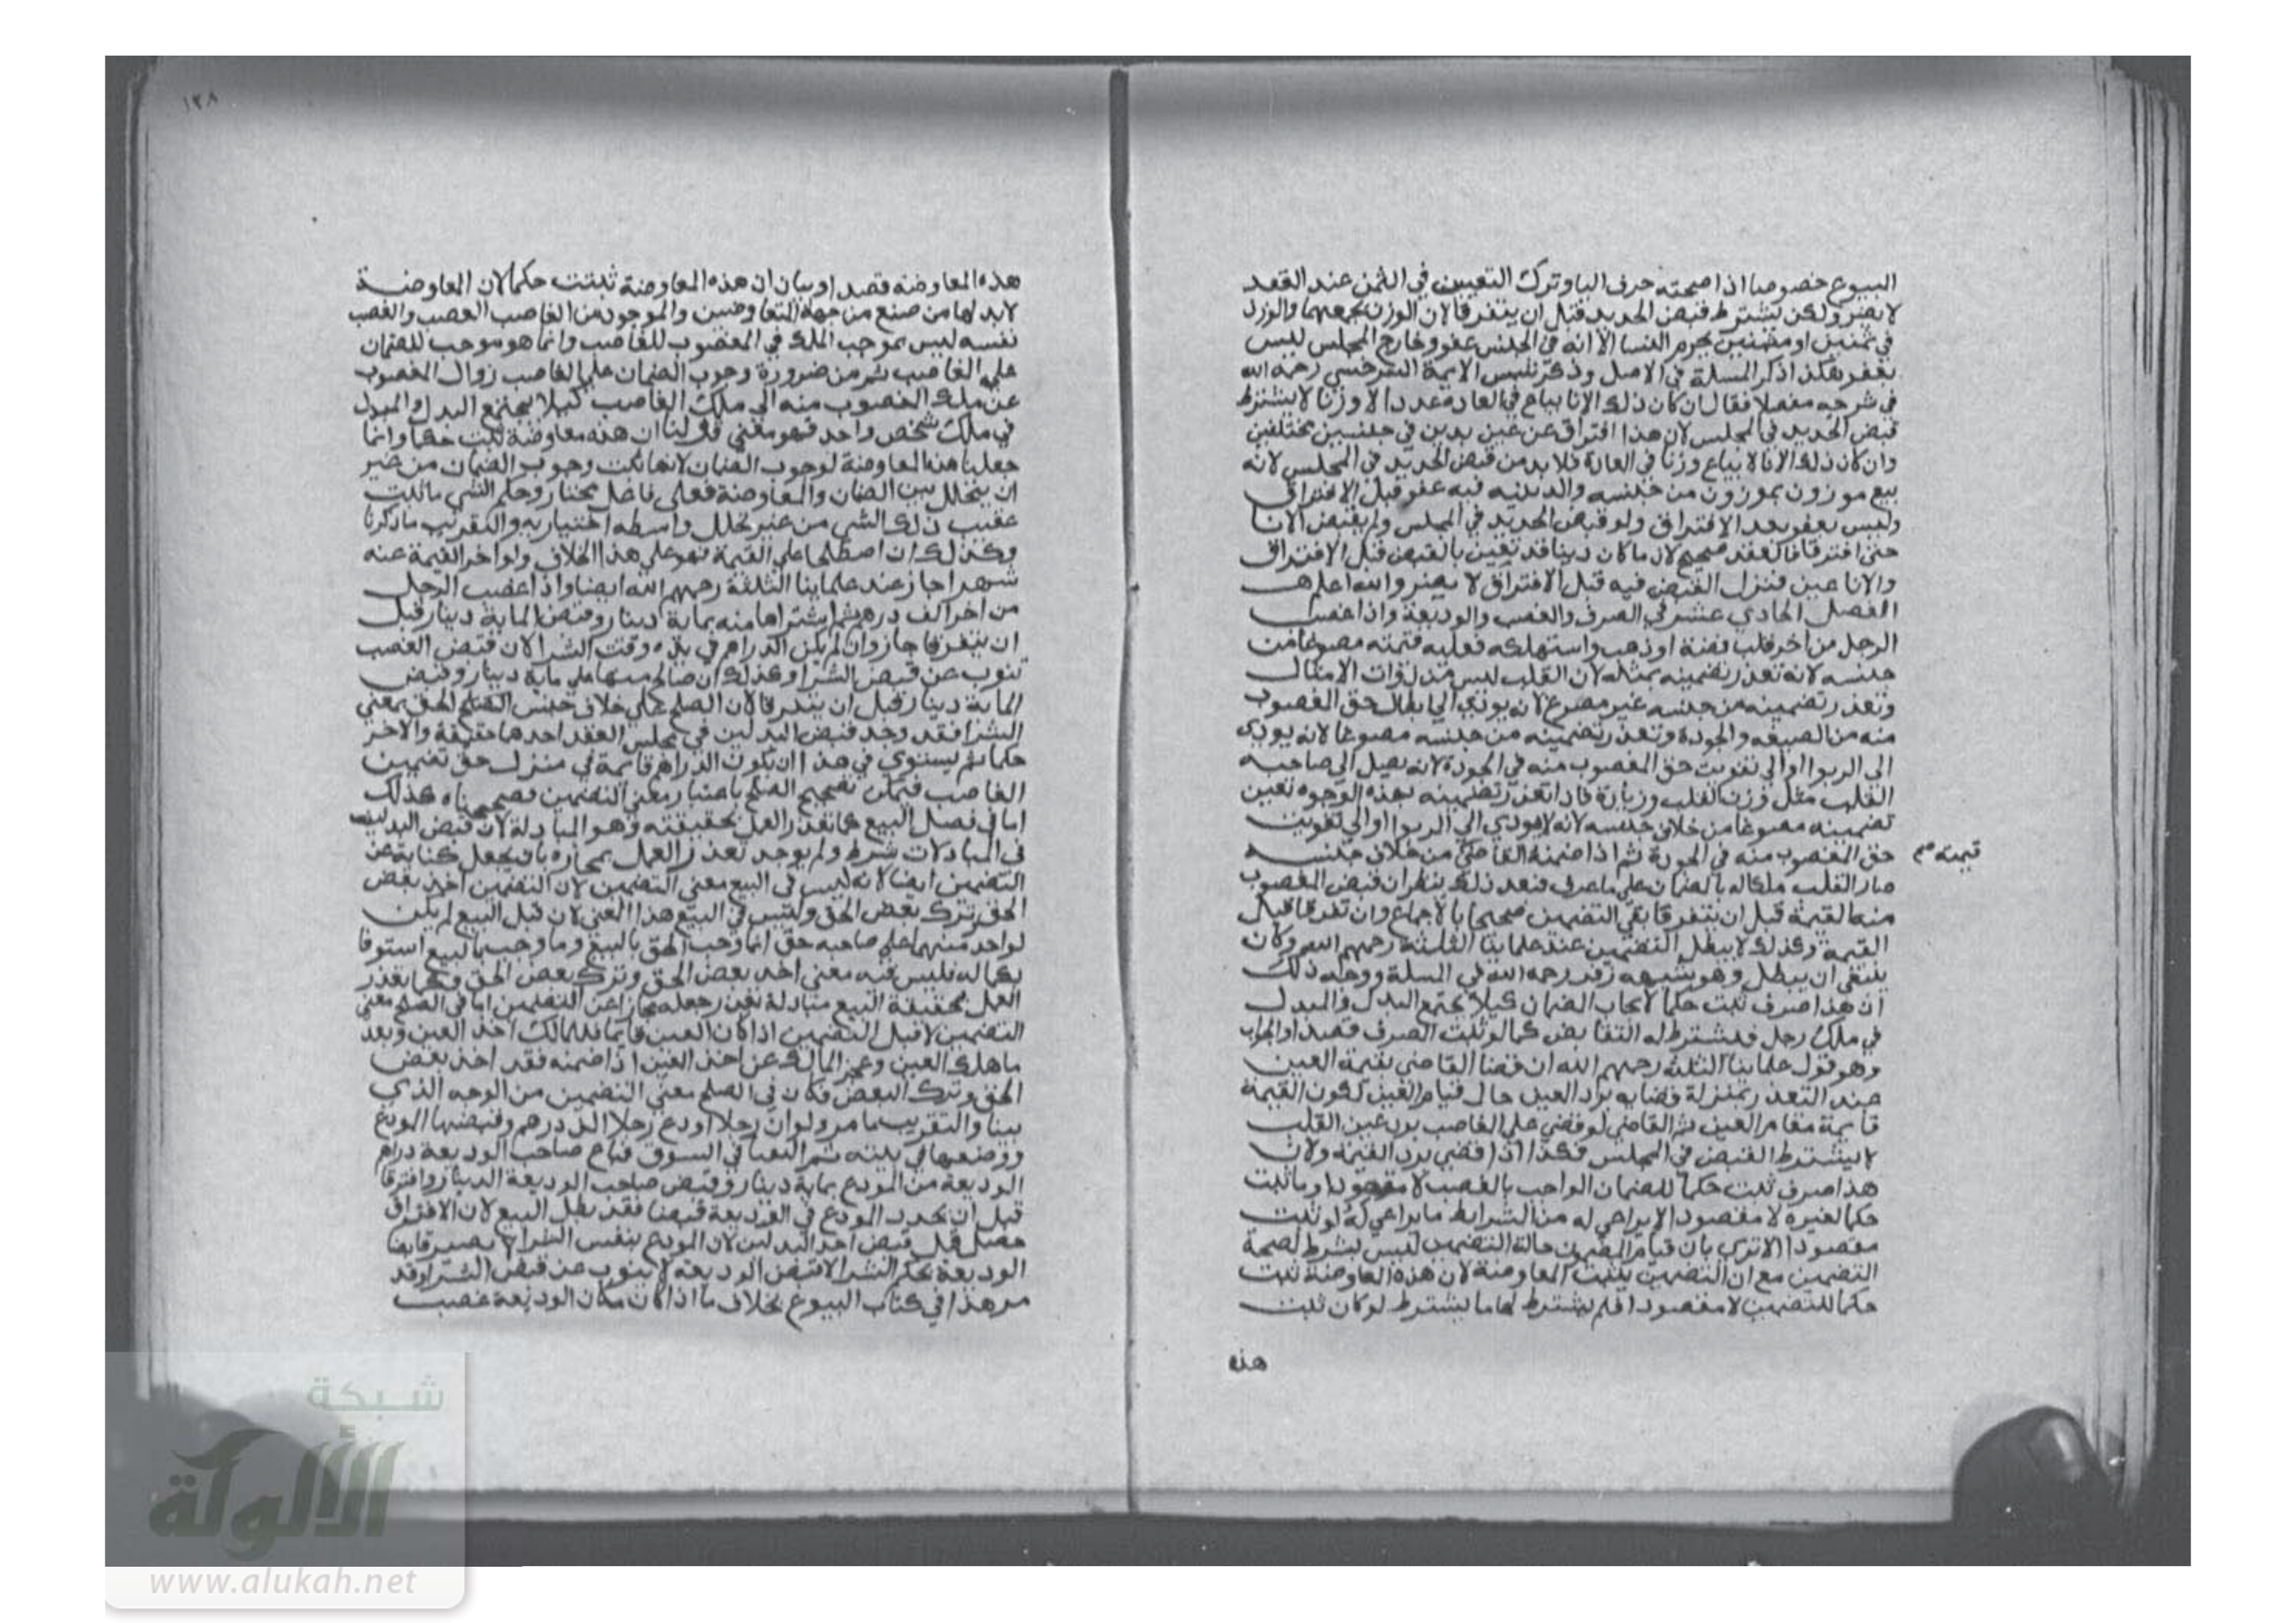 البيوع خصوصا اذا صحبته حرف البا وترك التعيين في الثمن عند العقد
لا يضر ولكن يشترط قبض الحديد قبل ان يتفرقا لان الوزن يجمعهما والوزن
في ثمنين او مثمنين يحرم النسا الا انه في المجلس عفو وخارج المجلس ليس
بعفو هكذا ذكر المسلة في الاصل وذكر شمس الايمة السرخسي رحمه الله
في شرحه مفصلا فقال ان كان ذلك الانا يباع في العادة عددا لا وزنا لا يشترط
قبض الحديد في المجلس لان هذا افتراق عن عين بدين في جنسين مختلفين
وان كان ذلك الانا لا يباع وزنا في العادة فلا بد من قبض الحديد في المجلس لانه
بيع موزون بموزون من جنسه والدينيه فيه عفو قبل الافتراق
وليس بعفو بعد الافتراق ولو قبض الحديد في المجلس ولم يقبض الانا
حتى افترقا فالعقد صحيح لان ما كان دينا قد تعين بالقبض قبل الافتراق
والانا عين فترك القبض فيه قبل الافتراق لا يضر والله اعلم
الفصل الحادي عشر في الصرف والغصب والوديعة واذا غصب
الرجل من اخر قلب فضة او ذهب واستهلكه فعليه قيمته مصوغا من
جنسه لانه تعذر تضمينه بمثله لان القلب ليس من ذوات الامثال
وتعذر تضمينه من جنسه غير مصوغ لانه يودي الى ابطال حق المغصوب
منه من الصيغه والجودة وتعذر تضمينه من جنسه مصوغا لانه يودي
الى الربوا او الى تفويت حق المغصوب منه في الجودة لانه يصل الى صاحبه
القلب مثل وزن القلب وزيادة فاذا تعذر تضمينه بهذه الوجوه تعين
تضمينه مصوغا من خلاف جنسه لانه لا يودي الى الربوا او الى تفويت
حق المغصوب منه في الجودة ثم اذا ضمنه القاضي من خلاف جنسه
قيمته صح
صار القلب ملكا له بالضمان على ما عرف فبعد ذلك ينظر ان قبض المغصوب
منه القيمة قبل ان يتفرقا بقي التضمين صحيحا بالاجماع وان تفرقا قبل
القيمة وكذلك لا يبطل التضمين عند علماينا الثلثة رحمهم الله وكان
ينبغي ان يبطل وهو يشبهه زفر رحمه الله في المسلة ووجه ذلك
ان هذا صرف ثبت حكما لايجاب الضمان كيلا يجتمع البدل والمبدل
في ملك رجل فيشترط له التقابض كما لو ثبت الصرف قصدا والجواب
وهو قول علماينا الثلثة رحمهم الله ان قضا القاضي بقيمة العين
عند التعذر بمنزلة قضايه برد العين حال قيام العين لكون القيمة
قايمة مقام العين ثم القاضي لو قضى على الغاصب برد عين القلب
لا يشترط القبض في المجلس فكذا اذا قضى برد القيمة ولان
هذا صرف ثبت حكما للضمان الواجب بالغصب لا مقصودا وما ثبت
حكما لغيره لا مقصودا لا يراعى له من الشرايط ما يراعى له لو ثبت
مقصودا الا ترى بان قيام حالة التضمين ليس بشرط لصحة
التضمين مع ان التضمين يثبت المعاوضة لان هذه المعاوضة ثبت
حكما للتضمين لا مقصودا فلم يشترط لها ما يشترط لو كان ثبت
هذه
١٢٨
هذه المعاوضة قصدا وبيان ان هذه المعاوضة ثبتت حكما لان المعاوضة
لا بد لها من صنع من جهة المتعاوضين والموجود من الغاصب الغصب والغصب
نفسه ليس بموجب الملك في المغصوب للغاصب وانما هو موجب للضمان
على الغاصب ثم من ضرورة وجوب الضمان على الغاصب زوال المغصوب
عن ملك المغصوب منه الى ملك الغاصب كيلا يجتمع البدل والمبدل
في ملك شخص واحد فهو معنى قولنا ان هذه معاوضة ثبت حكما وانما
جعلنا هذه المعاوضة لوجوب الضمان لانها ثبت وجوب الضمان من غير
ان يتخلل بين الضمان والمعاوضة فعل فاعل مختار وحكم الشي ما ثبت
عقيب ذلك الشي من غير تخلل واسطه اختياريه والتقريب ما ذكرنا
وكذلك ان اصطلحا على القيمة فهو على هذا الخلاف ولو اخر القيمة عنه
شهرا جاز عند علماينا الثلثة رحمهم الله ايضا واذا غصب الرجل
من اخر الف درهم ثم اشتراها منه بماية دينار وقبض الماية دينار قبل
ان يتفرقا جاز وان لم يكن الدراهم في يده وقت الشرا لان قبض الغصب
تنوب عن قبض الشرا وكذلك ان صالح منها على ماية دينار وقبض
الماية دينار قبل ان يتفرقا لان الصلح على خلاف جنس الحق بمعنى
الشرا فقد وجد قبض البدلين في مجلس العقد احدهما حقيقة والاخر
حكما ثم يستوي في هذا ان يكون الدراهم قايمة في منزل حق تضمين
الغاصب فيمكن تصحيح الصلح باعتبار معنى التضمين فصححناه كذلك
اما في فصل البيع كما تعذر العمل بحقيقته وهو المبادلة لان قبض البدلين
في المبادلات شرط ولم يوجد تعذر العمل بمجازه بان يجعل كناية عن
التضمين ايضا لانه ليس في البيع معنى التضمين لان التضمين اخذ بعض
الحق وترك بعض الحق وليس في البيع هذا المعنى لان قبل البيع لم يكن
لواحد منهما على صاحبه حق انما وجب الحق بالبيع وما وجب بالبيع استوفا
بكماله فليس فيه معنى اخذ بعض الحق وترك بعض الحق وكما تعذر
العمل بحقيقة البيع مبادلة تعذر جعله مجازا عن التضمين اما في الصلح معنى
التضمين لا قبل التضمين اذا كان العين قايما فللمالك اخذ العين وبعد
ما هلك العين وعجز المالك عن اخذ العين اذا ضمنه فقد اخذ بعض
الحق وترك البعض فكان في الصلح معنى التضمين من الوجه الذي
بينا والتقريب ما مر ولو ان رجلا اودع رجلا الف درهم وقبضها المودع
ووضعها في بيته ثم التقيا في السوق فباع صاحب الوديعة دراهم
الوديعة من المودع بماية دينار وقبض صاحب الوديعة الدينار وافترقا
قبل ان يجدد المودع في الوديعة قبضا فقد بطل البيع لان الافتراق
حصل قبل قبض احد البدلين لان المودع بنفس الشرا لا يصير قابضا
الوديعة بحكم الشرا لان قبض الوديعه لا ينوب عن قبض الشرا وقد
مر هذا في كتاب البيوع بخلاف ما اذا كان مكان الوديعة غصب
شبكة
الألوكة
www.alukah.net